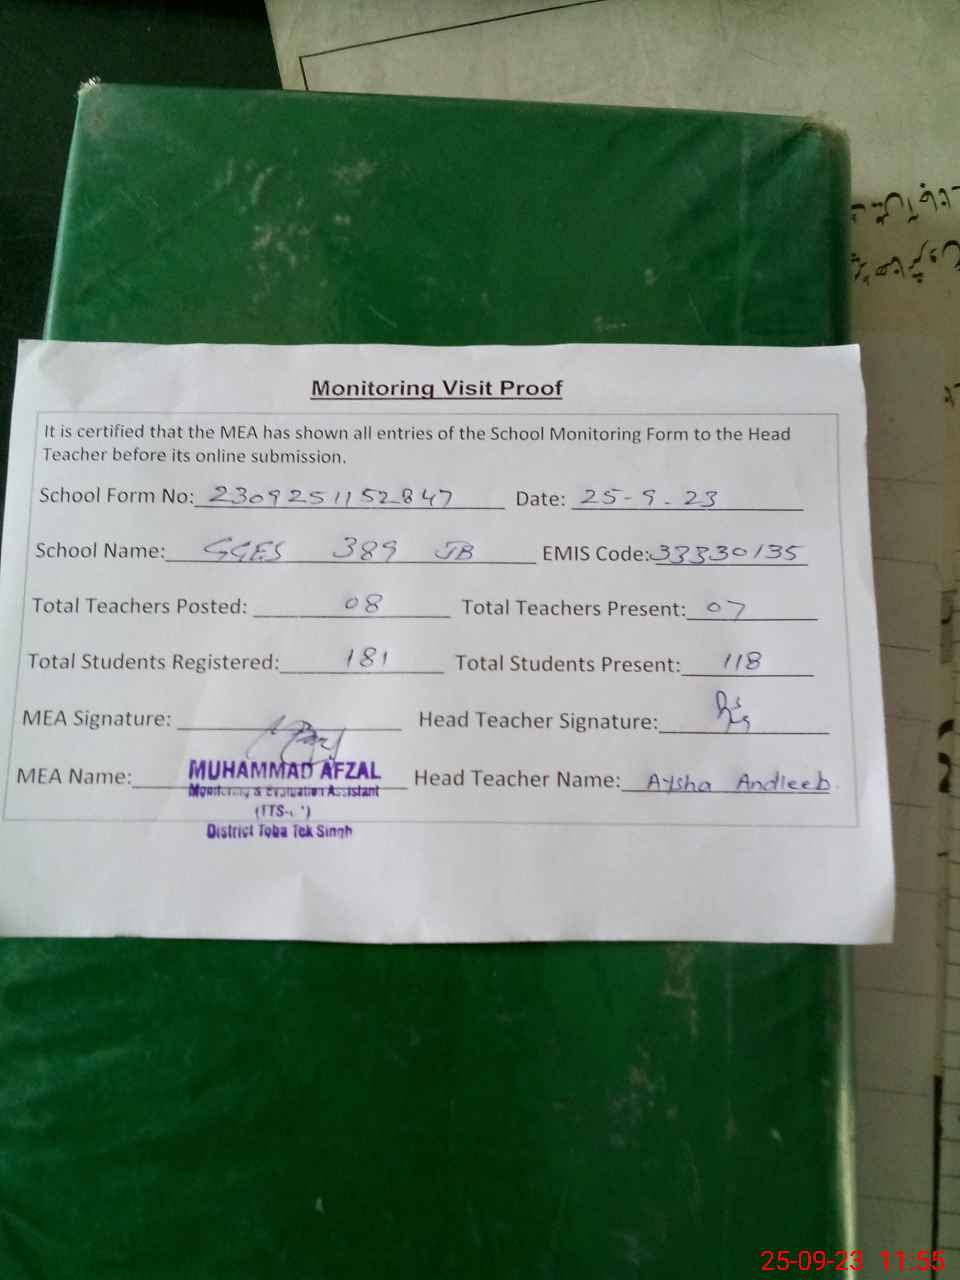 Monitoring Visit Proof
It is certified that the MEA has shown all entries of the School Monitoring Form to the Head
Teacher before its online submission.
School Form No: 2309251152847 Date: 25-9-23
School Name: GGES 389 JB EMIS Code: 33330135
Total Teachers Posted: 08 Total Teachers Present: 07
Total Students Registered: 181 Total Students Present: 118
MEA Signature: Head Teacher Signature:
MEA Name: MUHAMMAD AFZAL Head Teacher Name: Aysha Andleeb
Monitoring & Evaluation Assistant
District Toba Tek Singh
25-09-23 11:55